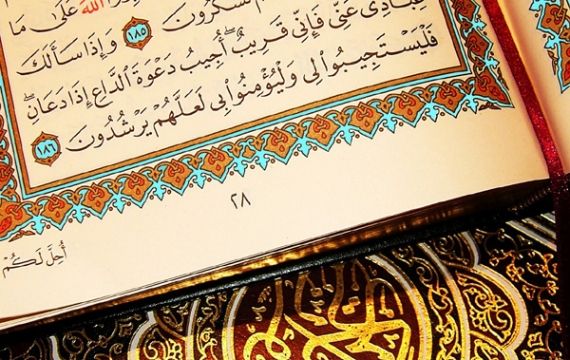 اللَّهَ عَلَىٰ مَا
تَشْكُرُونَ ١٨٥ وَإِذَا سَأَلَكَ
عِبَادِي عَنِّي فَإِنِّي قَرِيبٌ ۖ أُجِيبُ دَعْوَةَ الدَّاعِ إِذَا دَعَانِ ۖ
فَلْيَسْتَجِيبُوا لِي وَلْيُؤْمِنُوا بِي لَعَلَّهُمْ يَرْشُدُونَ ١٨٦
٢٨
أُحِلَّ لَكُمْ